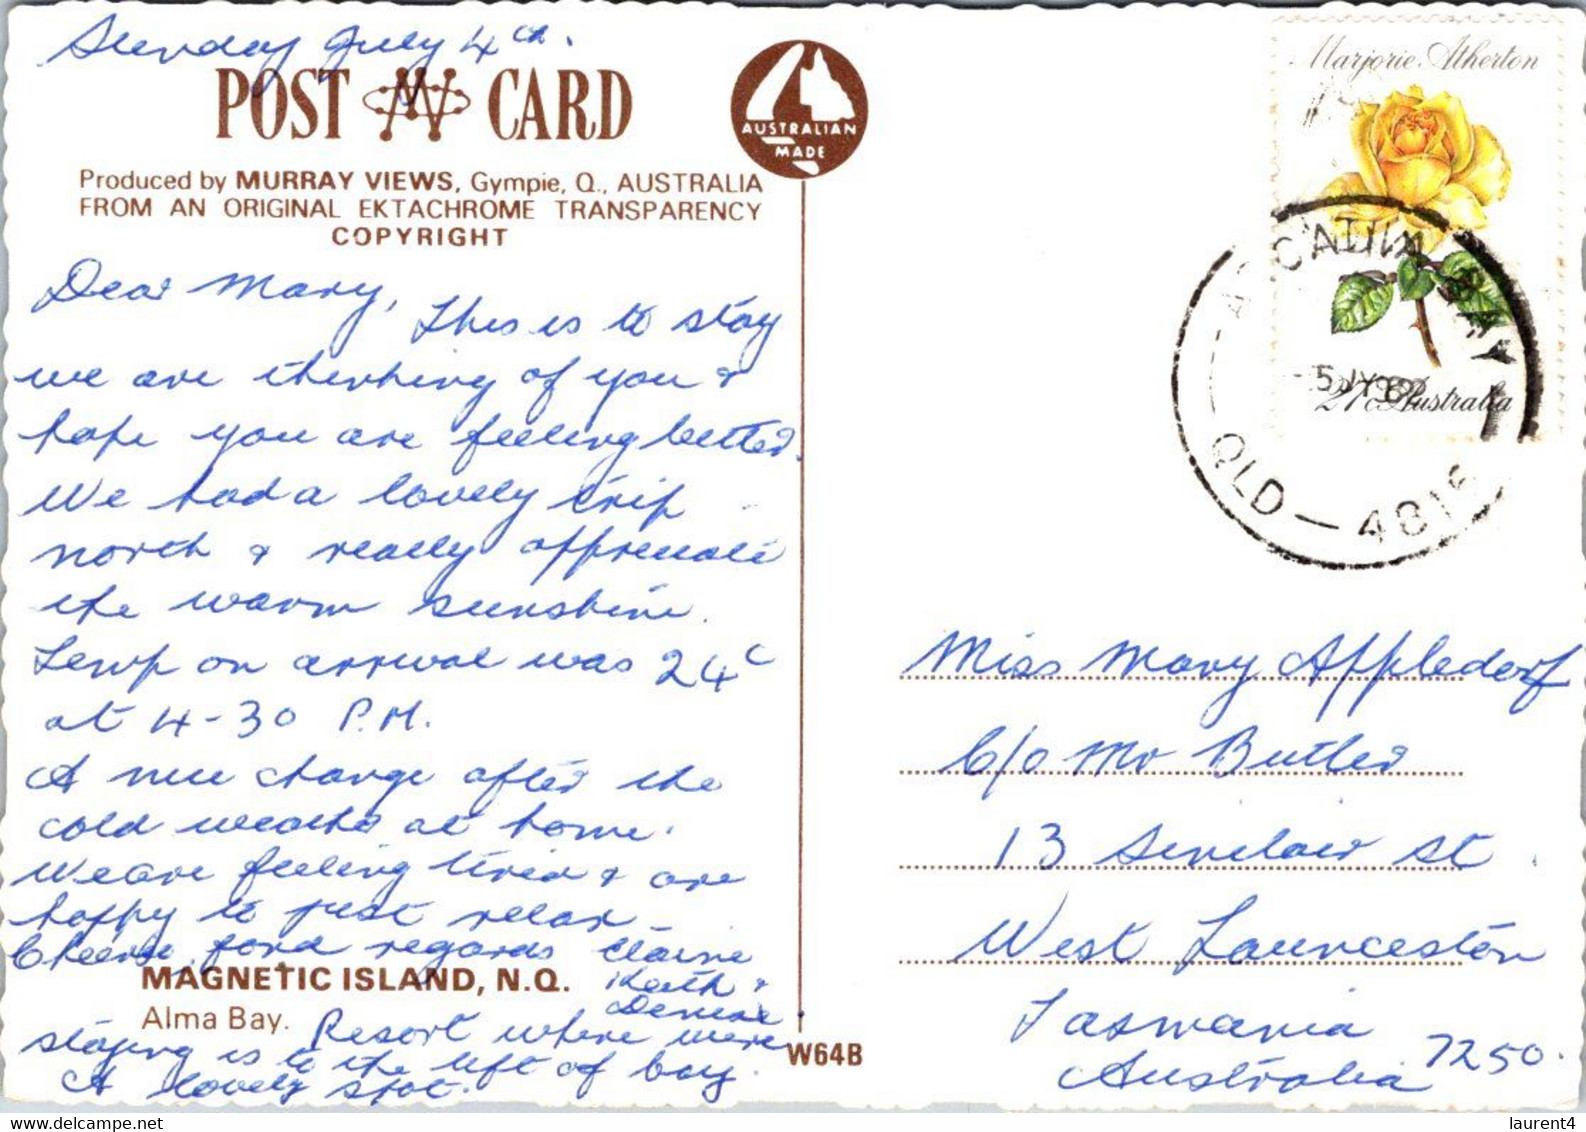 Sunday July 4th.
POST CARD
AUSTRALIAN
MADE
Produced by MURRAY VIEWS, Gympie, Q., AUSTRALIA
FROM AN ORIGINAL EKTACHROME TRANSPARENCY
COPYRIGHT
Dear Mary,
This is to say
we are thinking of you &
hope you are feeling better.
We had a lovely trip
north & really appreciate
the warm sunshine.
Temp on arrival was 24c
at 4-30 P.M.
A nice change after the
cold weather at home.
We are feeling tired & are
happy to just relax
Cheerio, fond regards Elaine
Keith &
Denise
MAGNETIC ISLAND, N.Q.
Alma Bay.
Resort where were
staying is to the left of bay.
A lovely spot.
W64B
Marjorie Atherton
27c Australia
5 JY 82
QLD - 4816
Miss Mary Appledorf
C/o Mr Butler
13 Sinclair St
West Launceston
Tasmania
Australia 7250.
laurent4